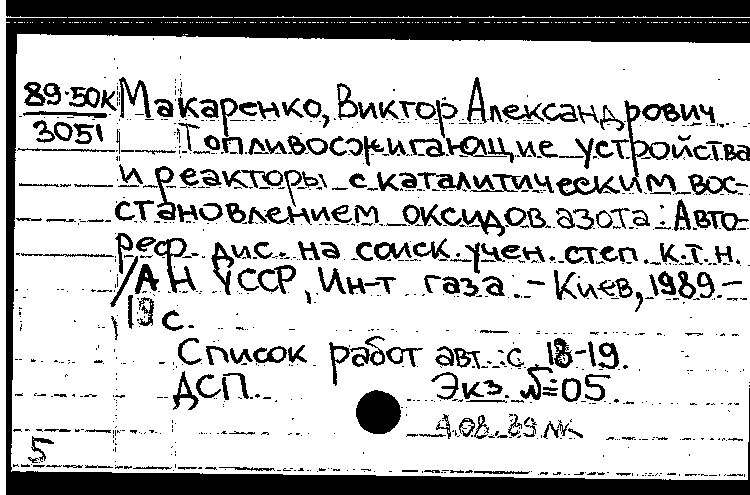 89-50К Макаренко, Виктор Александрович.
3051 Топливосжигающие устройства
и реакторы с каталитическим вос-
становлением оксидов азота: Авто-
реф. дис. на соиск. учен. степ. к.т.н.
/АН УССР, Ин-т газа. - Киев, 1989. -
19 с.
Список работ авт.: с. 18-19.
ДСП. Экз. №=05.
4.08.89 МК
5